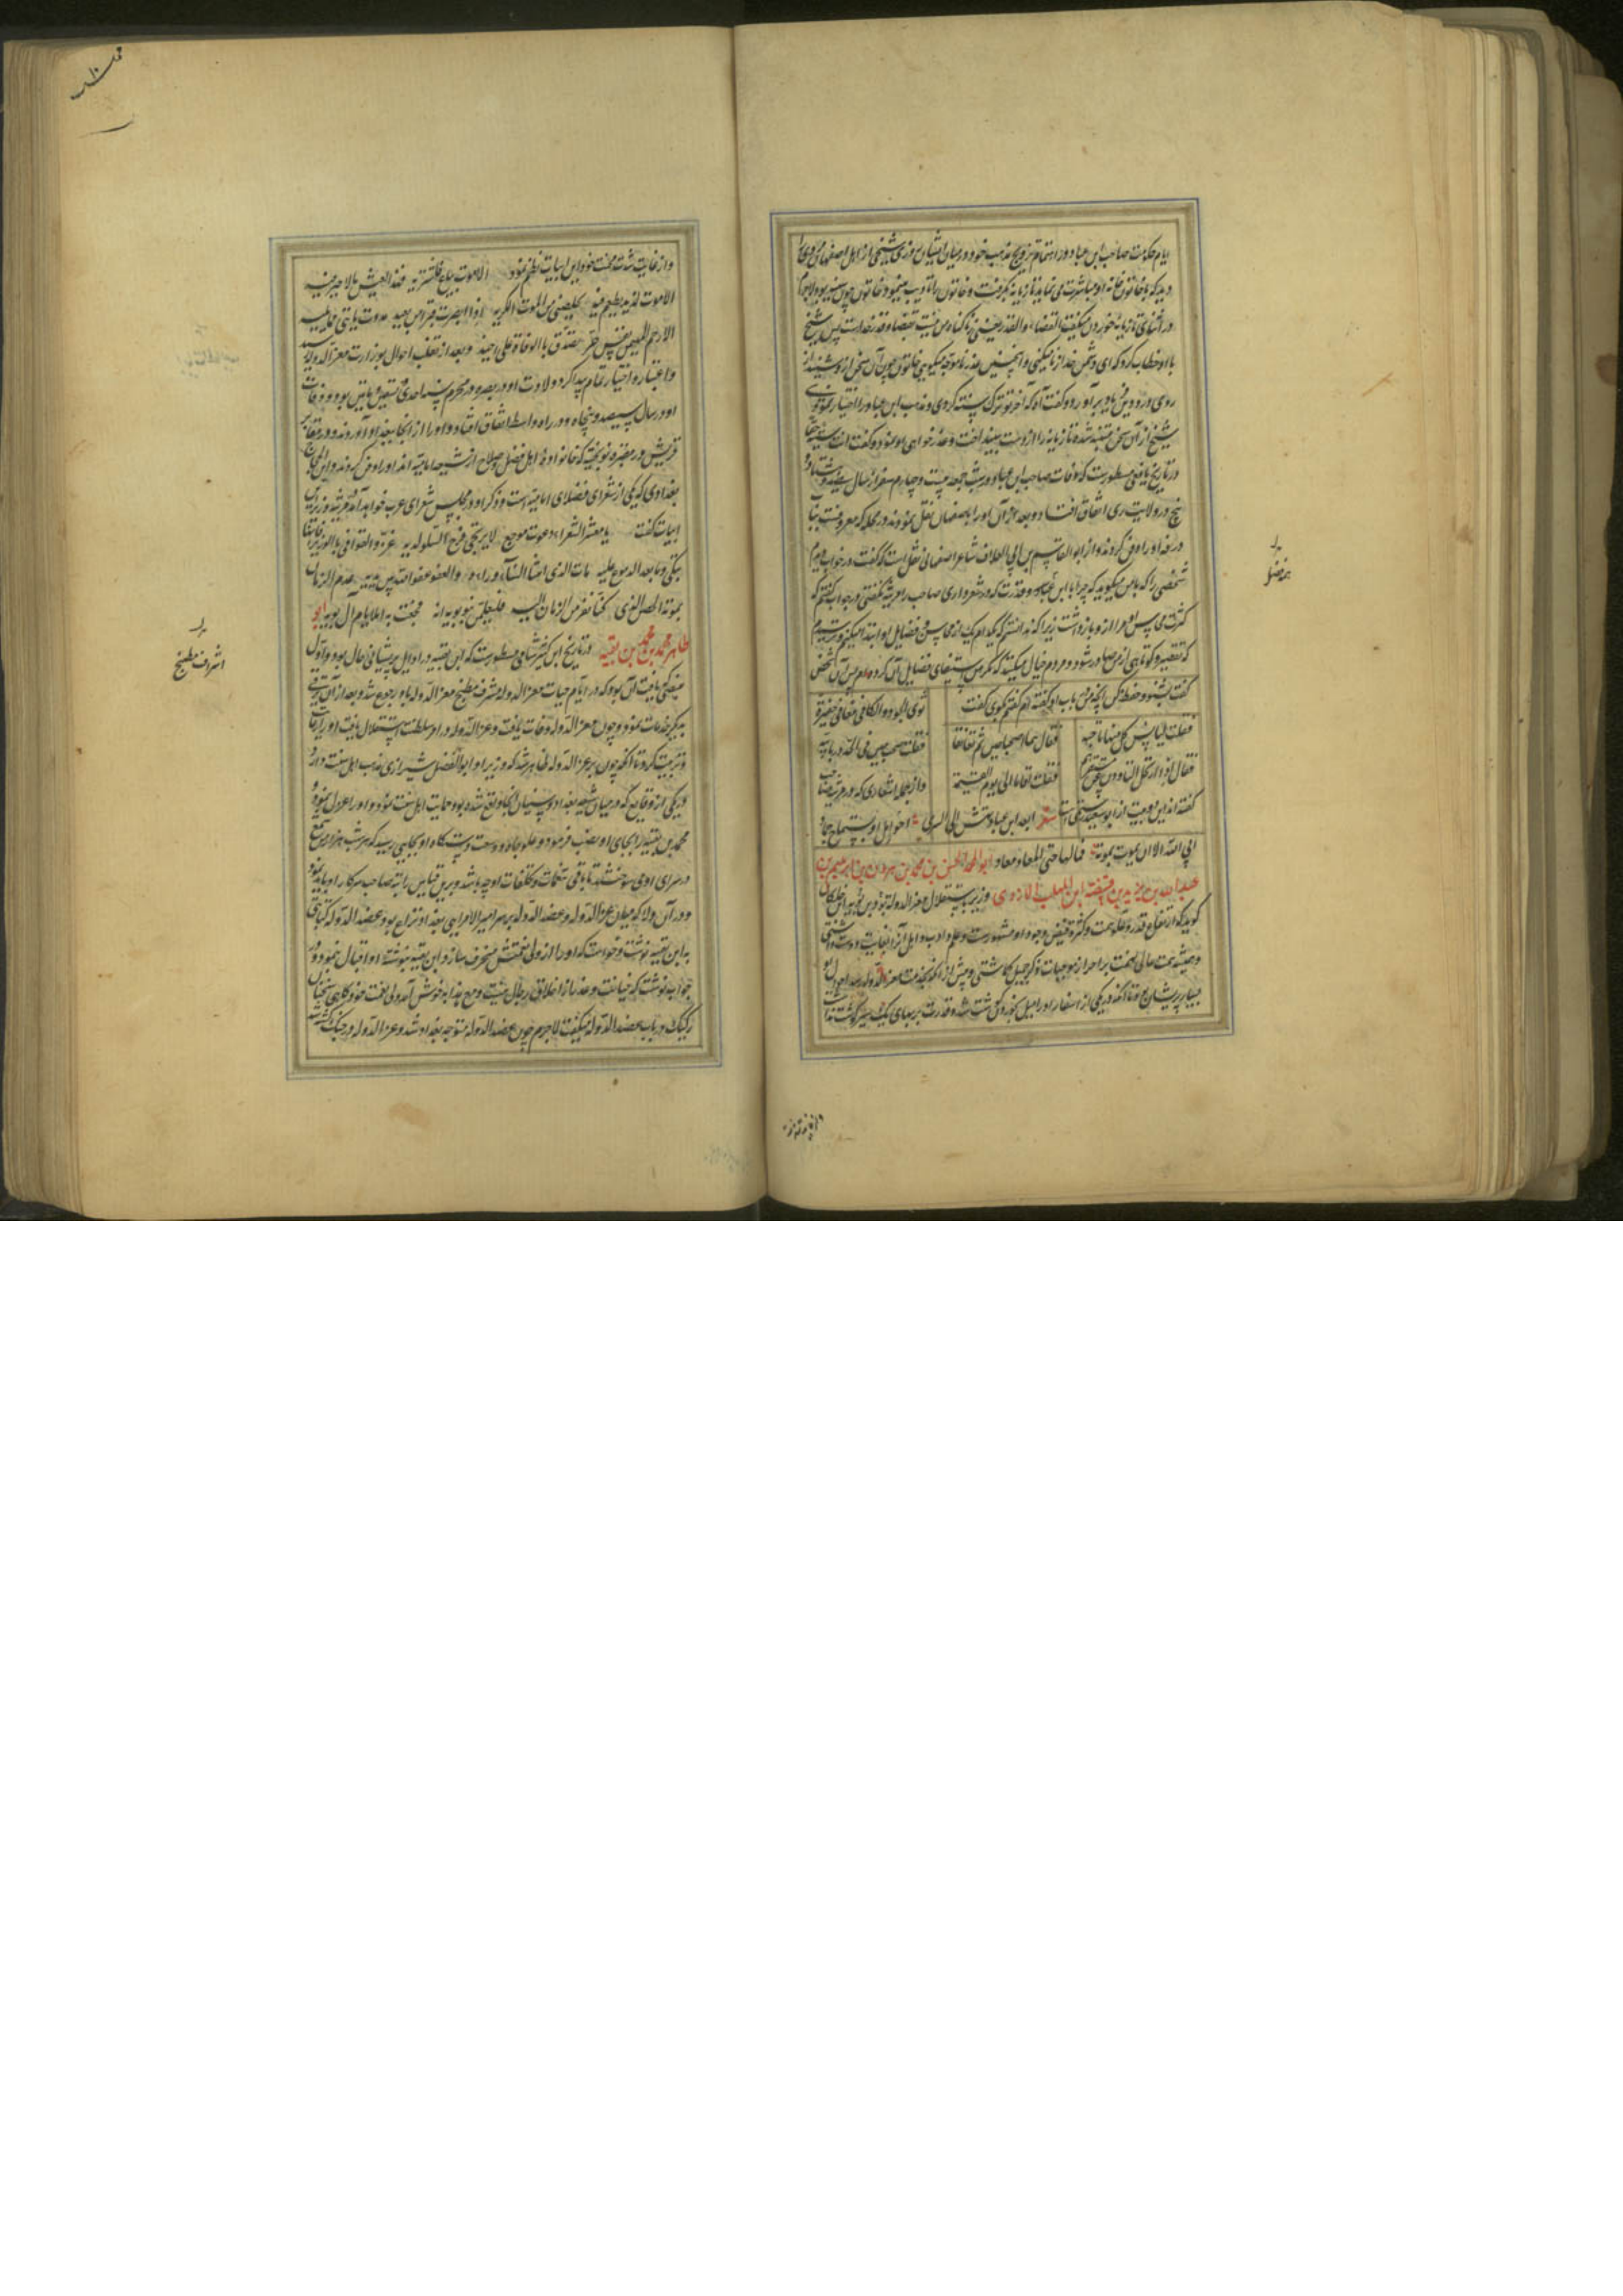 ایام حکومت صاحب ابن عباد در اهتمام ترویج مذهب خود در میان ایشان روزی شیخی از اهل اصفهان مردی را
دید که با خاتون خانه او مباشرت می نماید تازیانه بگرفت و خاتون را تادیب مینمود و خاتون چون
در اثنای تازیانه خوردن میگفت القضاء والقدر یعنی زنا گناه من نیست بقضا و قدر خداست پس شیخ
با او خطاب کرد که ای دشمن خدا زنا میکنی و اینچنین عذر ناموجه میگویی خاتون چون آن سخن ازو شنید از
روی درد دین فریاد برآورد و گفت آه که آخر تو ترک سنت کردی و مذهب ابن عباد را اختیار نمودی
شیخ از آن سخن متنبه شده تازیانه را از دست بینداخت و عذر خواهی او نموده گفت انت سنیة حقا
در تاریخ یافعی مسطور است که وفات صاحب ابن عباد در شب جمعه بیست و چهارم صفر از سال سیصد و هشتاد و
پنج در ولایت ری اتفاق افتاد و بعد از آن او را باصفهان نقل نمودند در محله که معروفست
دفن کردند و از ابوالقاسم بن ابی العلاء شاعر اصفهانی نقل است که گفت در خواب دیدم
شخصی را که با من میگوید که چرا با این فضل و قدرت که در شعر داری صاحب را مرثیه نگفتی در جواب گفتم که
کثرت محاسن او مرا ازو باز داشت زیرا که ندانستم که بکدام یک از محاسن و فضایل او ابتدا کنم و ترسیدم
که تقصیر و کوتاهی از من صادر شود و مردم خیال میکنند که مگر من استیفای فضایل آن کرده ام پس آن شخص
گفت بشنو و حفظ کن آنچه من در باب او گفته ام گفتم بگوی گفت ثوی الجود والکافی معا فی حفیرة
فقلت لیأنس کل منهما باخیه فقال هما اصطحبا حیین ثم تعانقا فقلت ضجیعین فی اللحد
فقال اذا ارتحل الثاوون عن مستقرهم فقلت اقاما الی یوم القیمة و از جمله اشعاری که در مرثیه صاحب
گفته اند این دو بیت از ابو سعید رستمی است شعر ابعد ابن عباد یهش الی السری اخو امل او یستماح جواد
ابی الله الا ان یموت بموته فما لهما حتی المعاد معاد ابو محمد الحسن بن محمد بن هرون بن ابراهیم بن
عبدالله بن یزید بن قبیصة ابن المهلب الازدی وزیر باستقلال معز الدوله بن بویه ابن خلکان
گوید که ارتفاع قدر و علو همت و کثرت فیض وجود او مشهور است و علم و ادب و اهل آنرا بغایت دوست داشتی
و همیشه همت عالی نعمت بر احراز موجبات ذکر جمیل گماشتی و پیش از آنکه بخدمت معز الدوله رسد احوال او
بسیار پریشان بود تا آنکه در یکی از اسفار او را میل بخوردن گوشت شد و قدرت بر بهای یک سیر گوشت نداشت
و از غایت شدت محنت خود این ابیات نظم نمود الا موت یباع فاشتریه فهذا العیش ما لا خیر فیه
الا موت لذیذ الطعم یأتی یخلصنی من الموت الکریه اذا ابصرت قبرا من بعید وددت باننی مما یلیه
الا رحم المهیمن نفس حر تصدق بالوفاة علی اخیه و بعد از تقلب احوال بوزارت معز الدوله رسید
و اعتبار و اختیار تمام پیدا کرد و ولادت او در بصره در محرم سنه احدی و تسعین و مأتین بود و وفات
او در سال سیصد و پنجاه و دو در راه واسط اتفاق افتاد و او را از آنجا ببغداد آوردند و در مقابر
قریش در مقبره نوبختیه که خانواده اهل فضل و صلاح از شیعه امامیه اند او را دفن کردند و ابن الحجاج
بغدادی که یکی از شعرای فضلای امامیه است و ذکر او در مجلس شعرای عرب خواهد آمد در مرثیه وزیر این
ابیات گفت یا معشر الشعراء دعوة موجع لا یرتجی فرج السلو لدیه عزوا القوافی بالوزیر فانها
تبکی دما بعد الدموع علیه مات الذی امسی الثناء وراءه والعفو عفو الله بین یدیه هدم الزمان
بموته الحصن الذی کنا نفر من الزمان الیه فلیعلمن بنو بویه انه فجعت به ایام آل بویه ابو
طاهر محمد بن محمد بن بقیه در تاریخ ابن کثیر شامی مسطور است که ابن بقیه در اوایل پریشانی حال بود و اول
منصبی که یافت آن بود که در ایام حیات معز الدوله اشراف مطبخ معز الدوله باو رجوع شد و بعد از آن ترقی
به دیگر خدمات نمود و چون معز الدوله وفات یافت و عز الدوله در امر سلطنت استقلال یافت او را رعایت
و تربیت کرد تا آنکه چون بر عز الدوله ظاهر شد که وزیر او ابوالفضل شیرازی مذهب اهل سنت دارد و
در یکی از وقایع که در میان شیعه بغداد و سنیان آنجا واقع شده بود حمایت اهل سنت نمود او را عزل نموده
محمد بن بقیه را بجای او نصب فرمود و علو جاه و وسعت دستگاه او بجایی رسید که هر شب هزار من شمع
در سرای او می سوختند تا باقی تنعمات و تکلفات او چه باشد و برین قیاس راتبه صاحب سرکار او باید نمود
و در آن ولا که میان عز الدوله و عضد الدوله بر سر امیر الامرایی بغداد نزاع بود عضد الدوله کتابتی
به ابن بقیه نوشت و خواست که او را از ولی نعمتش منحرف سازد ابن بقیه بنوشته او اقبال ننمود و در
جواب نوشت که خیانت و غدر از اخلاق رجال نیست و مع هذا به خوش آمد ولی نعمت خود گاهی سخنان
رکیک در باب عضد الدوله میگفت لاجرم چون عضد الدوله متوجه بغداد شد و عز الدوله در جنگ کشته شد
اشراف مطبخ